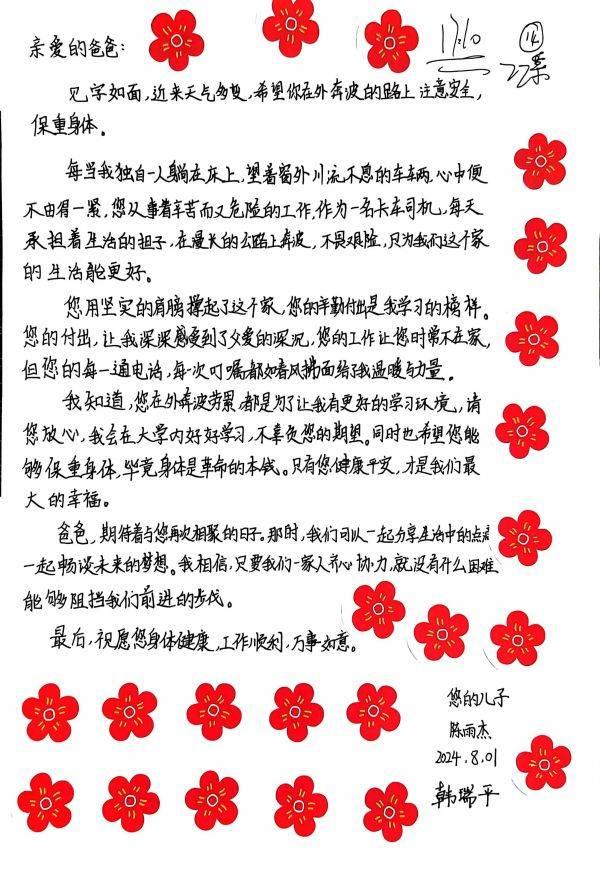 亲爱的爸爸：
17:10
14
见字如面，近来天气多变，希望你在外奔波的路上注意安全，
保重身体。
每当我独自一人躺在床上，望着窗外川流不息的车辆，心中便
不由得一紧，您从事着辛苦而又危险的工作，作为一名卡车司机，每天
承担着生活的担子，在漫长的公路上奔波，不畏艰险，只为我们这个家
的生活能更好。
您用坚实的肩膀撑起了这个家，您的辛勤付出是我学习的榜样。
您的付出，让我深深感受到了父爱的深沉，您的工作让您时常不在家，
但您的每一通电话，每一次叮嘱都如春风拂面给了我温暖与力量。
我知道，您在外奔波劳累，都是为了让我有更好的学习环境，请
您放心，我会在大学内好好学习，不辜负您的期望。同时也希望您能
够保重身体，毕竟身体是革命的本钱。只有您健康平安，才是我们最
大的幸福。
爸爸，期待着与您再次相聚的日子。那时，我们可以一起分享生活中的点滴
一起畅谈未来的梦想。我相信，只要我们一家人齐心协力，就没有什么困难
能够阻挡我们前进的步伐。
最后，祝愿您身体健康，工作顺利，万事如意。
您的儿子
陈雨杰
2024.8.01
韩瑞平